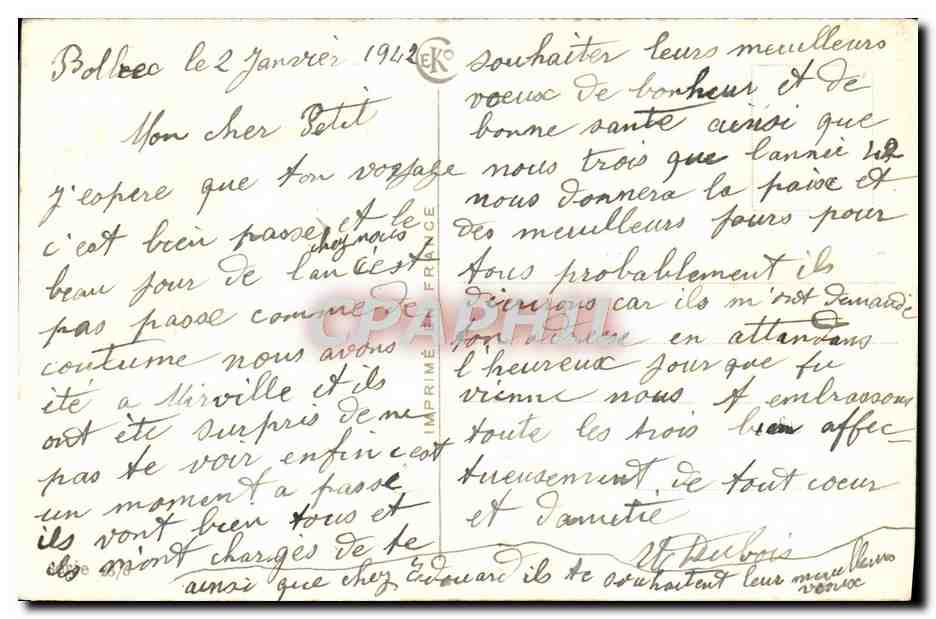 Bolbec le 2 Janvier 1942
Mon cher Petit
J'espere que ton voyage
c'est bien passé et le
beau jour de l'an c'est
chez nous
pas passe comme de
coutume nous avons
été a Mirville et ils
ont été surpris de ne
pas te voir enfin c'est
un moment a passé
ils vont bien tous et
ils m'ont chargés de te
souhaiter leurs meuilleurs
voeux de bonheur et de
bonne santé ainsi que
nous trois que l'année 42
nous donnera la paix et
des meuilleurs jours pour
tous probablement ils
car ils m'ont demandé
ton adresse en attandans
l'heureux jour que tu
vienne nous t embrassons
toute les trois bien affec-
tueusement de tout coeur
et d'amitié
Dubois
ainsi que chez Edouard ils te souhaitent leur meuilleurs
voeux
EKO
IMPRIMÉ EN FRANCE
CPAPHIL